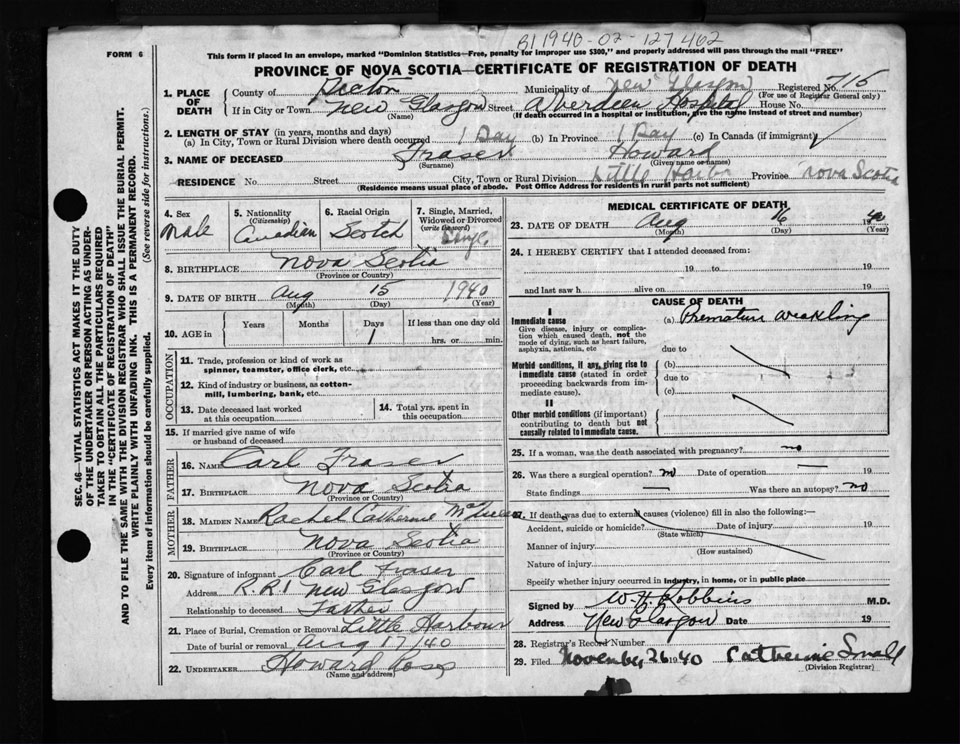 B1 1940-02-127462
FORM 6
This form if placed in an envelope, marked "Dominion Statistics—Free, penalty for improper use $300," and properly addressed will pass through the mail "FREE"
PROVINCE OF NOVA SCOTIA—CERTIFICATE OF REGISTRATION OF DEATH
1. PLACE OF DEATH County of Pictou Municipality of New Glasgow Registered No. 715
(For use of Registrar General only)
If in City or Town New Glasgow Street Aberdeen Hospital House No.
(Name) (If death occurred in a hospital or institution, give the name instead of street and number)
2. LENGTH OF STAY (in years, months and days)
(a) In City, Town or Rural Division where death occurred 1 Day (b) In Province 1 Day (c) In Canada (if immigrant)
3. NAME OF DECEASED Fraser Howard
(Surname) (Given name or names)
RESIDENCE No. Street City, Town or Rural Division Little Harbor Province Nova Scotia
(Residence means usual place of abode. Post Office Address for residents in rural parts not sufficient)
4. Sex Male
5. Nationality (Citizenship) Canadian
6. Racial Origin Scotch
7. Single, Married, Widowed or Divorced (write the word) Single
8. BIRTHPLACE Nova Scotia
(Province or Country)
9. DATE OF BIRTH Aug 15 1940
(Month) (Day) (Year)
10. AGE in Years Months Days 1 If less than one day old hrs. or min.
OCCUPATION
11. Trade, profession or kind of work as spinner, teamster, office clerk, etc.
12. Kind of industry or business, as cotton-mill, lumbering, bank, etc.
13. Date deceased last worked at this occupation
14. Total yrs. spent in this occupation
15. If married give name of wife or husband of deceased
FATHER
16. NAME Carl Fraser
17. BIRTHPLACE Nova Scotia
(Province or Country)
MOTHER
18. MAIDEN NAME Rachel Catherine
19. BIRTHPLACE Nova Scotia
(Province or Country)
20. Signature of informant Carl Fraser
Address R.R.1 New Glasgow
Relationship to deceased Father
21. Place of Burial, Cremation or Removal Little Harbour
Date of burial or removal Aug 17/40
22. UNDERTAKER Howard Ross
(Name and address)
MEDICAL CERTIFICATE OF DEATH
23. DATE OF DEATH Aug 16 1940
(Month) (Day) (Year)
24. I HEREBY CERTIFY that I attended deceased from:
19 to 19
and last saw h alive on 19
CAUSE OF DEATH
I
Immediate cause (a) Premature weakling
Give disease, injury or complication which caused death, not the mode of dying, such as heart failure, asphyxia, asthenia, etc
due to
Morbid conditions, if any, giving rise to immediate cause (stated in order proceeding backwards from immediate cause).
(b)
due to
(c)
II
Other morbid conditions (if important) contributing to death but not causally related to immediate cause.
25. If a woman, was the death associated with pregnancy? no
26. Was there a surgical operation? no Date of operation — 19
State findings — Was there an autopsy? no
27. If death was due to external causes (violence) fill in also the following:—
Accident, suicide or homicide? Date of injury 19
(State which)
Manner of injury
(How sustained)
Nature of injury
Specify whether injury occurred in industry, in home, or in public place
Signed by W. H. Robbins M.D.
Address New Glasgow Date 19
28. Registrar's Record Number
29. Filed November 26 1940 Catherine Small
(Division Registrar)
SEC. 46—VITAL STATISTICS ACT MAKES IT THE DUTY
OF THE UNDERTAKER OR PERSON ACTING AS UNDER-
TAKER TO OBTAIN ALL THE PARTICULARS REQUIRED
IN THE "CERTIFICATE OF REGISTRATION OF DEATH"
AND TO FILE THE SAME WITH THE DIVISION REGISTRAR WHO SHALL ISSUE THE BURIAL PERMIT.
WRITE PLAINLY WITH UNFADING INK. THIS IS A PERMANENT RECORD.
Every item of information should be carefully supplied. (See reverse side for instructions.)